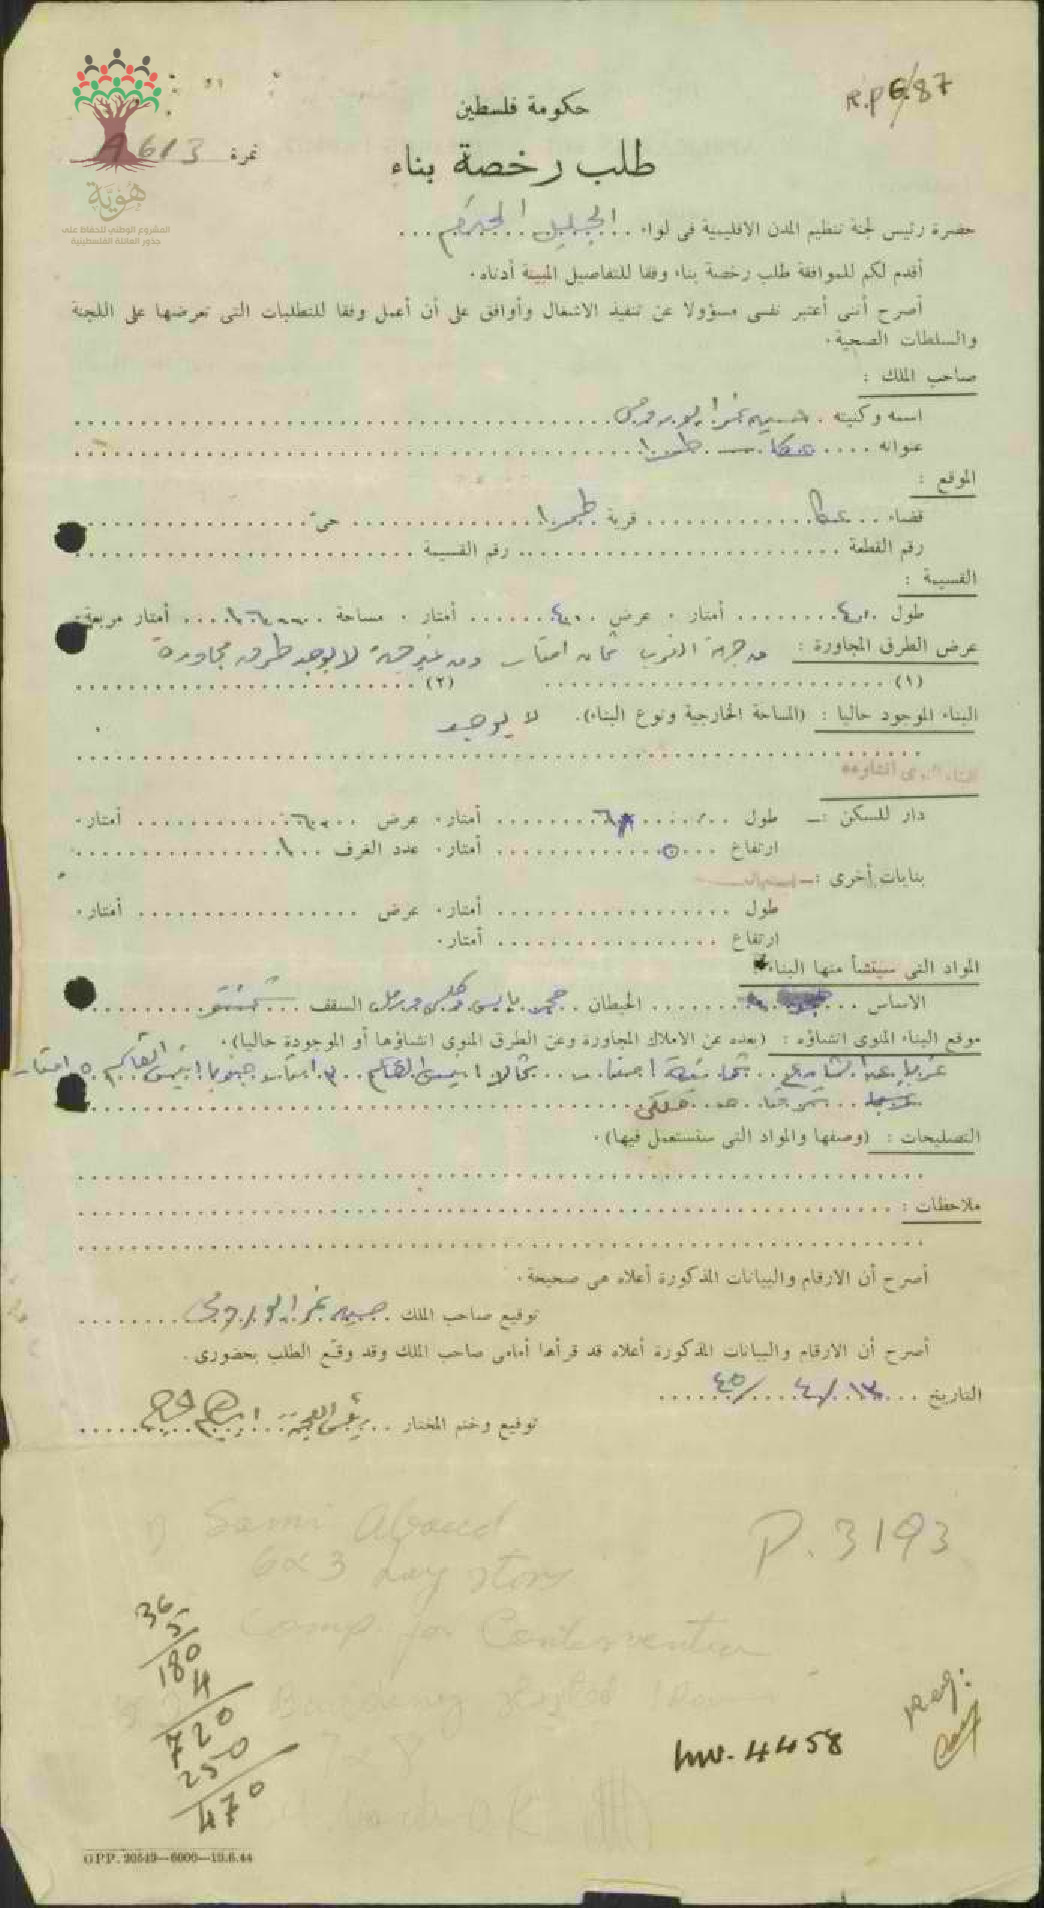 R.P 6/87
حكومة فلسطين
نمرة A613
طلب رخصة بناء
هُويَّة
المشروع الوطني للحفاظ على
جذور العائلة الفلسطينية
حضرة رئيس لجنة تنظيم المدن الاقليمية فى لواء الجليل المحترم
أقدم لكم للموافقة طلب رخصة بناء وفقا للتفاصيل المبينة أدناه.
أصرح أننى أعتبر نفسى مسؤولا عن تنفيذ الاشغال وأوافق على أن أعمل وفقا للمتطلبات التى تعرضها على اللجنة
والسلطات الصحية.
صاحب الملك :
اسمه وكنيته حسين نمر ابو رومى
عنوانه عكا – طمرا
الموقع :
قضاء عكا قرية طمرا حى
رقم القطعة رقم القسيمة
القسيمة :
طول ٤٠٠ أمتار. عرض ٤٠٠ أمتار. مساحة أمتار مربعة.
عرض الطرق المجاورة : من جهة الغرب ثمان امتار ومن غير جهة لا يوجد طرق مجاورة
(١) (٢)
البناء الموجود حاليا : (المساحة الخارجية ونوع البناء). لا يوجد
البناء المنوى انشاؤه
دار للسكن :— طول ٦ أمتار. عرض ٦ أمتار.
ارتفاع ٥ أمتار. عدد الغرف ١
بنايات أخرى :—
طول أمتار. عرض أمتار.
ارتفاع أمتار.
المواد التى سينشأ منها البناء :
الاساس الحيطان حجر يابس وكلس ورمل السقف
موقع البناء المنوى انشاؤه : (بعده عن الاملاك المجاورة وعن الطرق المنوى انشاؤها أو الموجودة حاليا).
غربا عن الشارع ثمانية امتار شمالا انيس القاسم ٣ امتار جنوبا انيس القاسم امتار
شرقا من ملكى
التصليحات : (وصفها والمواد التى ستستعمل فيها).
ملاحظات :
أصرح أن الارقام والبيانات المذكورة أعلاه هى صحيحة.
توقيع صاحب الملك حسين نمر ابو رومى
أصرح أن الارقام والبيانات المذكورة أعلاه قد قرأها أمامى صاحب الملك وقد وقع الطلب بحضورى.
التاريخ ١٣/٤/٤٥
توقيع وختم المختار
Sami Aboud
P. 3193
6 x 3 Lay story
Comp. for Contervention
36
5
180
4
720
250
470
Building started
7 x 8
Reg:
Inv. 4458
GPP. 20549—6000—19.6.44